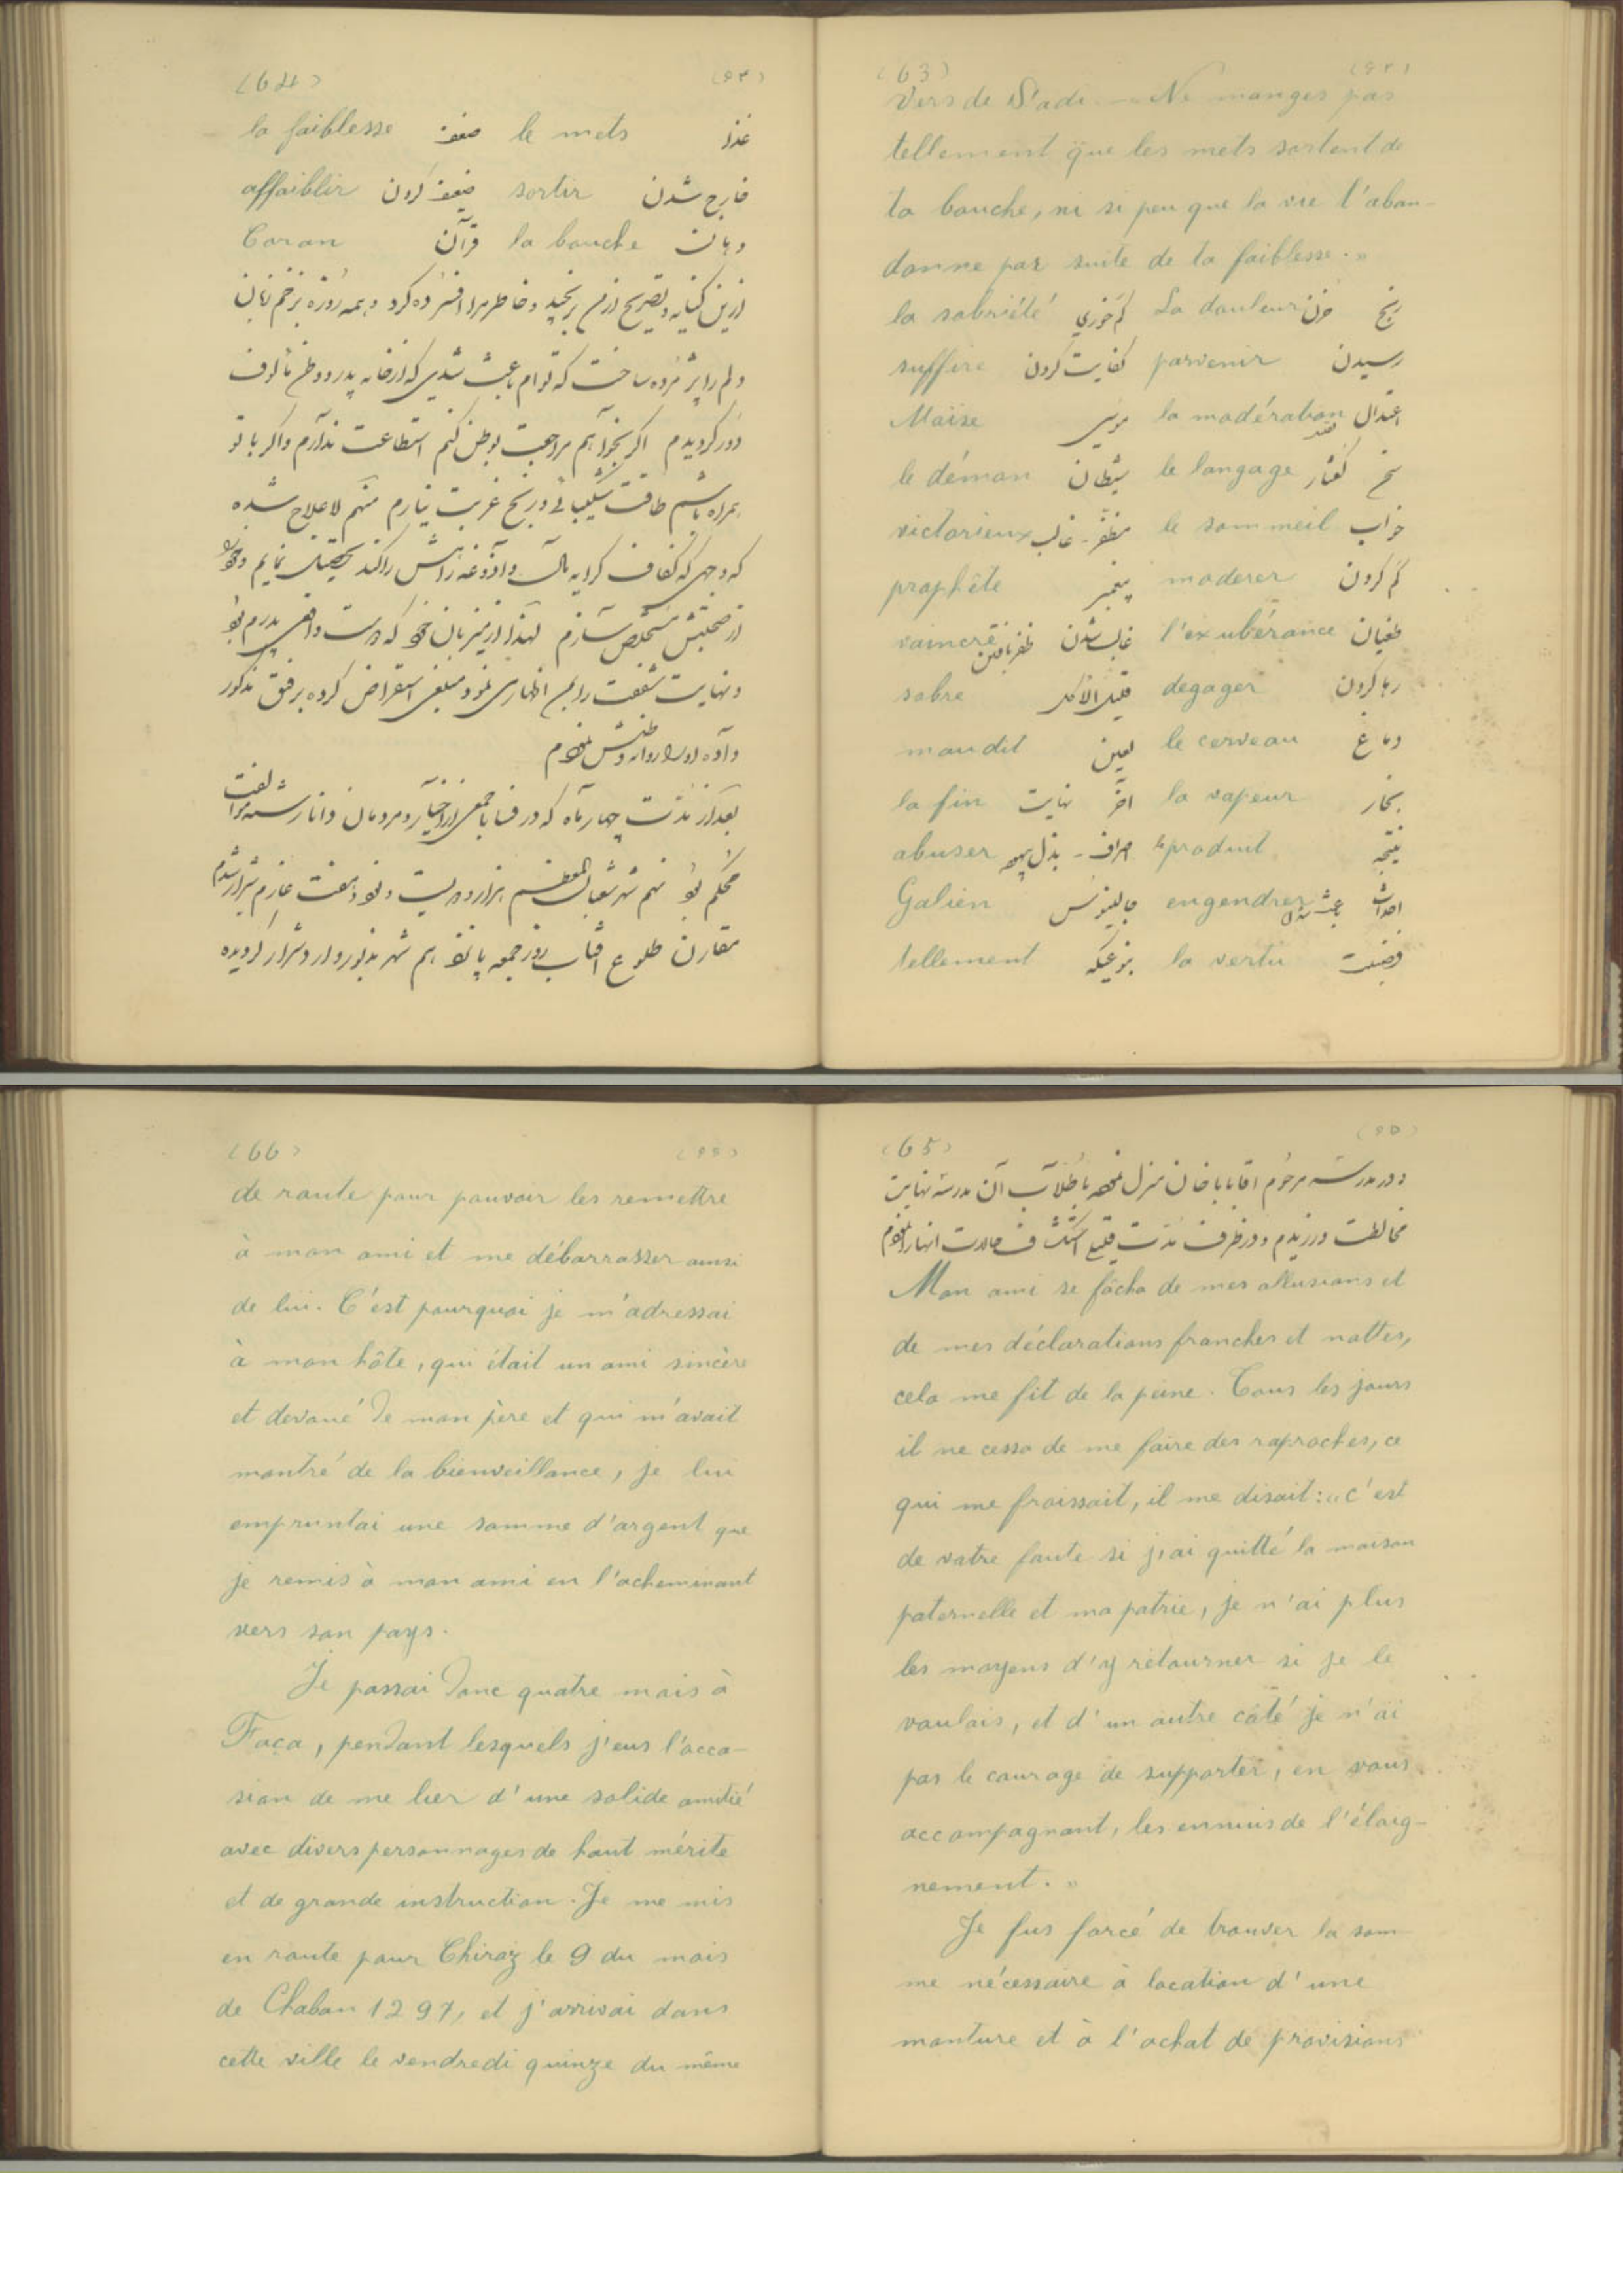 (63) (۶۳)
Vers de S'adi — Ne manges pas
tellement que les mets sortent de
ta bouche, ni si peu que la vie t'aban-
donne par suite de ta faiblesse. »
la sobriété کم خوری La douleur حزن رنج
suffire کفایت کردن parvenir رسیدن
Moïse موسی la modération اعتدال
le démon شیطان le langage گفتار
victorieux مظفر - غالب le sommeil خواب
prophète پیغمبر moderer کم کردن
vaincre غالب شدن ظفر یافتن l'exubérance طغیان
sobre قلیل الاکل degager رها کردن
maudit لعین le cerveau دماغ
la fin آخر نهایت la vapeur بخار
abuser le produit نتیجه
Galien جالینوس engendrer احداث باعث شدن
tellement بنوعیکه la vertu فضیلت
(64) (۶۴)
la faiblesse ضعف le mets غذا
affaiblir ضعیف کردن sortir خارج شدن
Coran قرآن la bouche دهان
ازین کنایه و تصریح از من رنجید و خاطر مرا افسرده کرد و همه روزه بزخم زبان
دلم را پژمرده ساخت که توام باعث شدی که از خانه پدر و وطن مألوف
دور گردیدم اگر بخواهم مراجعت بوطن کنم استطاعت ندارم و اگر با تو
همراه باشم طاقت شکیبائی در رنج غربت نیارم منهم لاعلاج شده
که وجهی که کفاف کرایه مال و آذوغه راهش را کند تحصیل نمایم و خود
از صحبتش مستخلص سازم لهذا از میزبان خود که دوست واقعی پدرم بود
و نهایت شفقت را بمن اظهار می نمود مبلغی استقراض کرده برفیق مذکور
داده او را روانه وطنش نمودم
بعد از مدت چهار ماه که در فسا با جمعی از اخیار و مردمان دانا رشته موالفت
محکم بود نهم شهر شعبان المعظم هزار و دویست و نود و هفت عازم شیراز شدم
مقارن طلوع آفتاب روز جمعه پانزدهم شهر مذبور وارد شیراز گردیده
(65) (۶۵)
و در مدرسه مرحوم آقا بابا خان منزل نموده با طلاب آن مدرسه نهایت
مخالطت ورزیدم و در ظرف مدت قلیل استکشاف حالات آنها را نمودم
Mon ami se fâcha de mes allusions et
de mes déclarations franches et nottes,
cela me fit de la peine. Tous les jours
il ne cessa de me faire des raproches, ce
qui me froissait, il me disait: « c'est
de votre faute si j'ai quitté la maison
paternelle et ma patrie, je n'ai plus
les moyens d'y retourner si je le
voulais, et d'un autre côté je n'ai
pas le courage de supporter, en vous
accompagnant, les ennuis de l'éloig-
nement. »
Je fus forcé de trouver la som
me nécessaire à location d'une
monture et à l'achat de provisions
(66) (۶۶)
de route pour pouvoir les remettre
à mon ami et me débarrasser ainsi
de lui. C'est pourquoi je m'adressai
à mon hôte, qui était un ami sincère
et devoué de mon père et qui m'avait
montré de la bienveillance, je lui
empruntai une somme d'argent que
je remis à mon ami en l'acheminant
vers son pays.
Je passai donc quatre mois à
Faça, pendant lesquels j'eus l'occa-
sion de me lier d'une solide amitié
avec divers personnages de haut mérite
et de grande instruction. Je me mis
en route pour Chiraz le 9 du mois
de Chaban 1297, et j'arrivai dans
cette ville le vendredi quinze du même